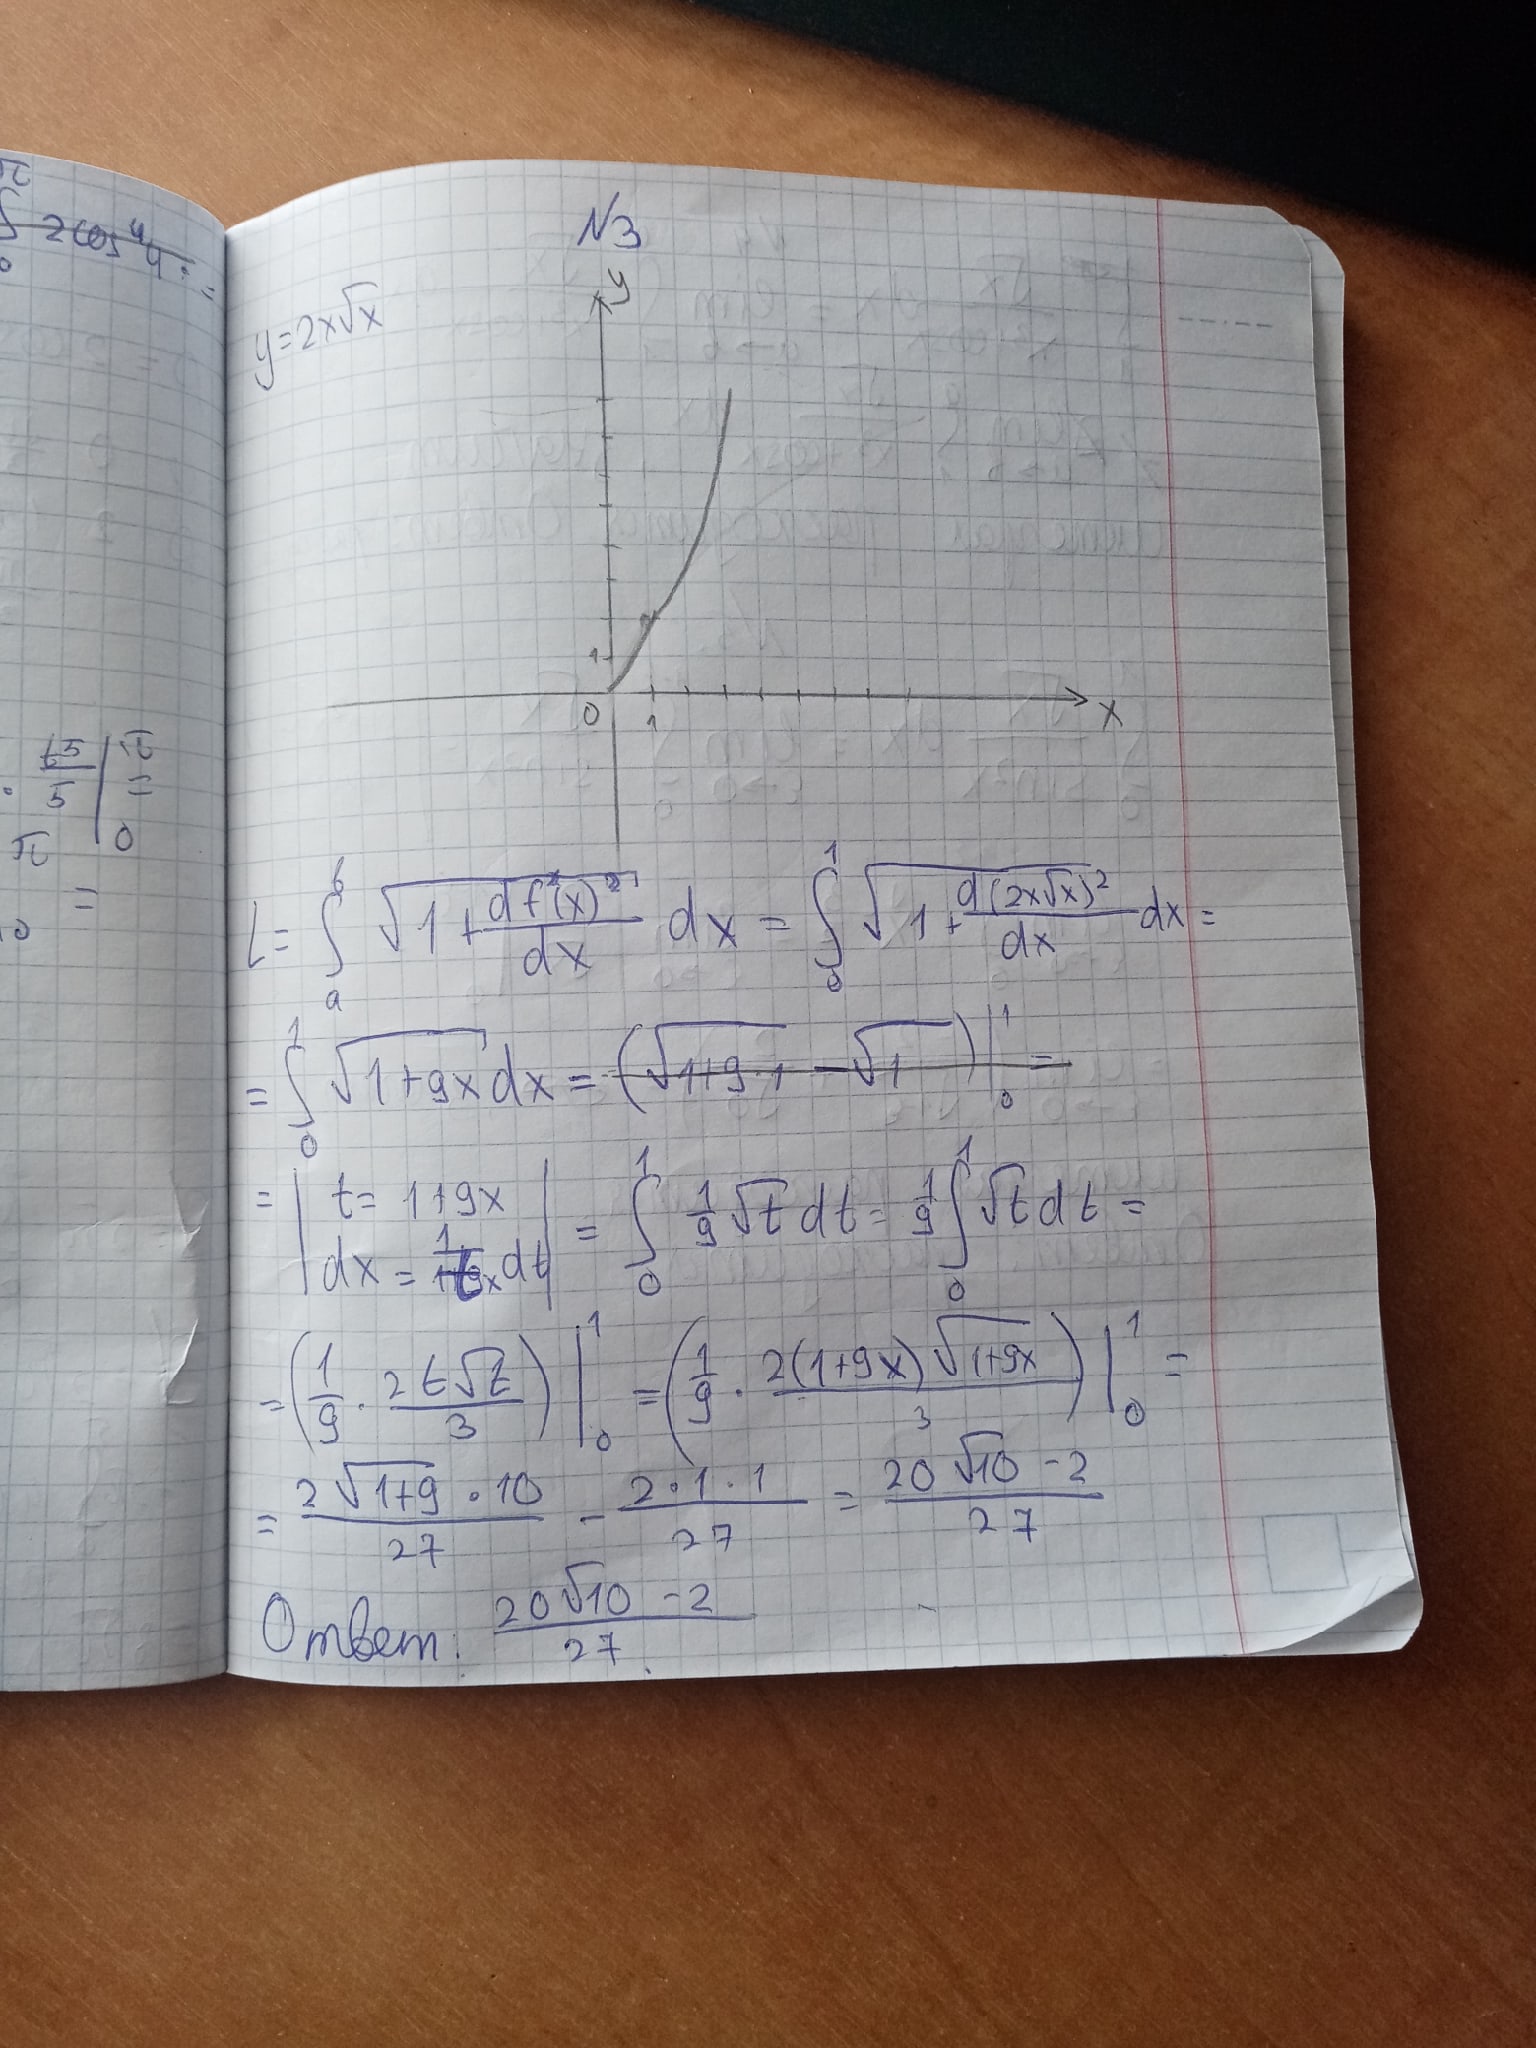 π
∫ 2cos⁴φ · =
0
· t5/5 |π 0 =
π
=
10
N3
y
y=2x√x
1
0 1 x
L = ∫ₐᵇ √(1 + df(x)²/dx) dx = ∫₀¹ √(1 + d(2x√x)²/dx) dx =
= ∫₀¹ √(1+9x) dx = (√(1+9·1) - √1)|₀¹ =
= | t = 1+9x
dx = 1/t dt | = ∫₀¹ 1/9 √t dt = 1/9 ∫₀¹ √t dt =
= (1/9 · 2t√t/3)|₀¹ = (1/9 · 2(1+9x)√(1+9x)/3)|₀¹ =
= 2√(1+9) · 10/27 - 2·1·1/27 = (20√10 - 2)/27
Ответ: (20√10 - 2)/27.